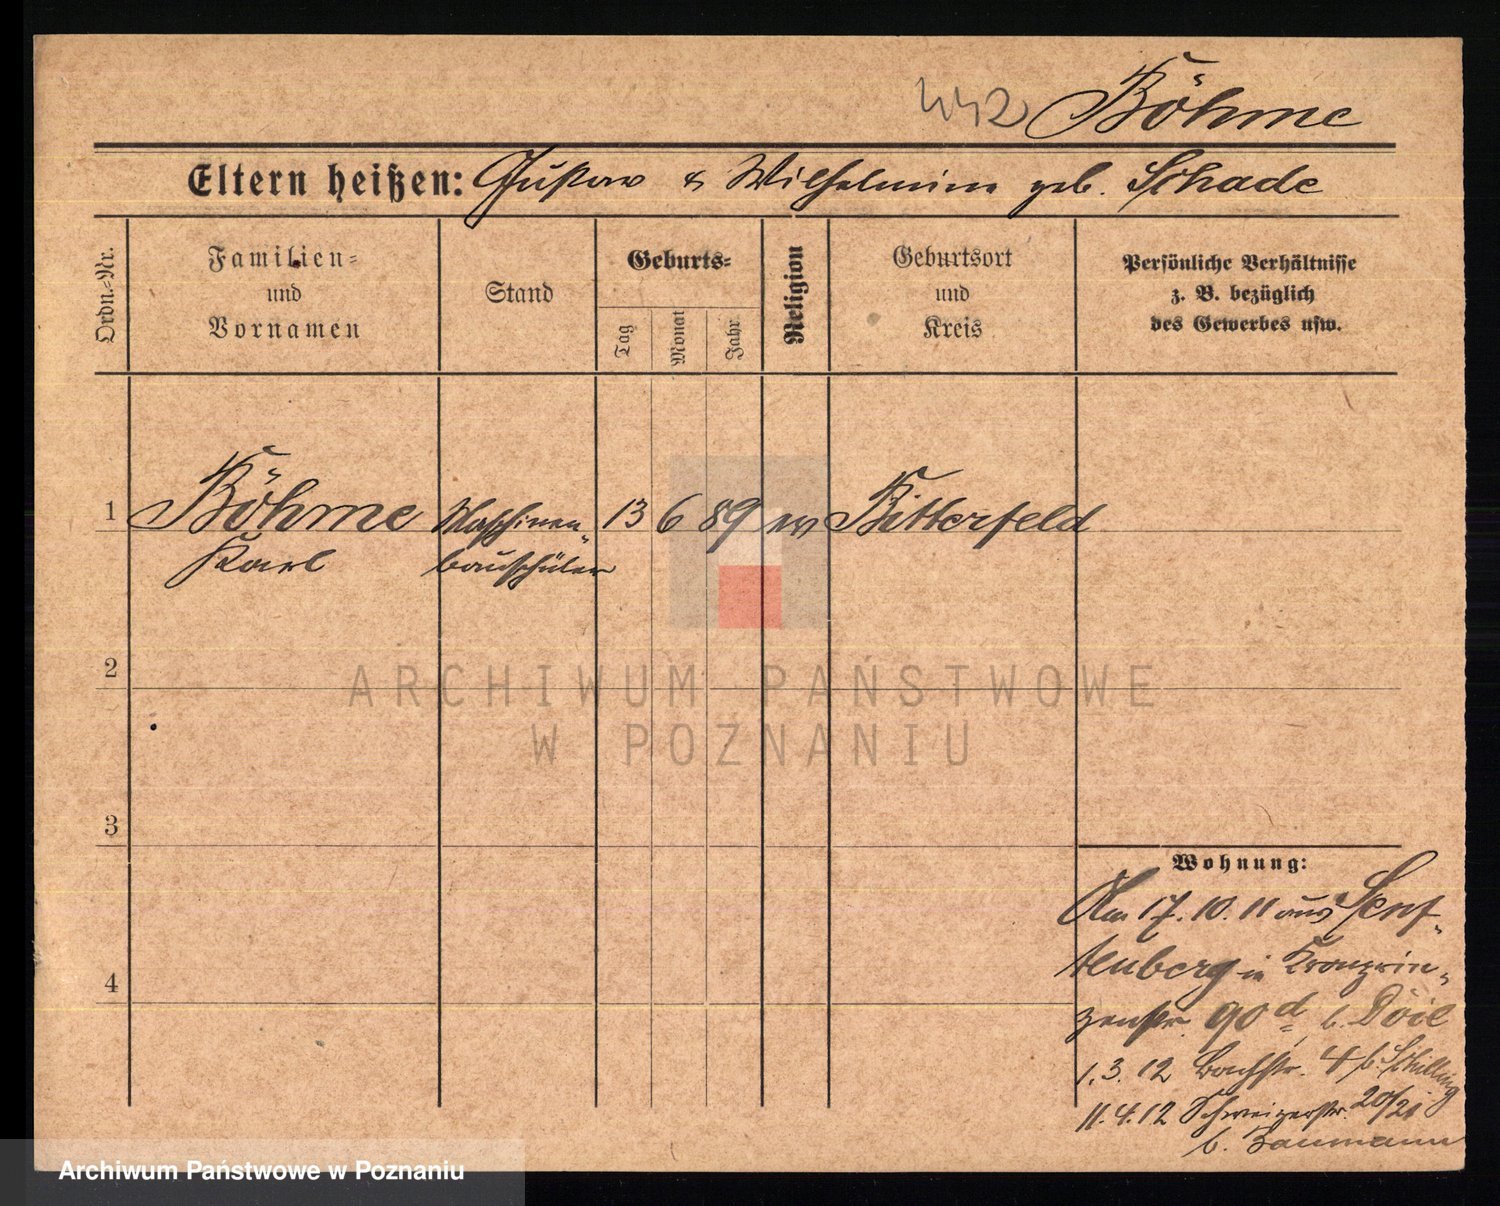 442 Böhme
Eltern heißen: Gustav & Wilhelmine geb. Schade
Ordn.-Nr.
Familien-
und
Vornamen
Stand
Geburts-
Tag
Monat
Jahr
Religion
Geburtsort
und
Kreis
Persönliche Verhältnisse
z. B. bezüglich
des Gewerbes usw.
1 Böhme Maschinen- 13 6 89 ev Bitterfeld
Karl bauschüler
2
ARCHIWUM PAŃSTWOWE
W POZNANIU
3
Wohnung:
Am 17.10.11 aus Senf-
tenberg in Kronprin-
4
zenstr. 90d b.
1.3.12 Bachstr. 4 b. Schilling
11.4.12 Schweizerstr. 20/21
b. Baumann
Archiwum Państwowe w Poznaniu